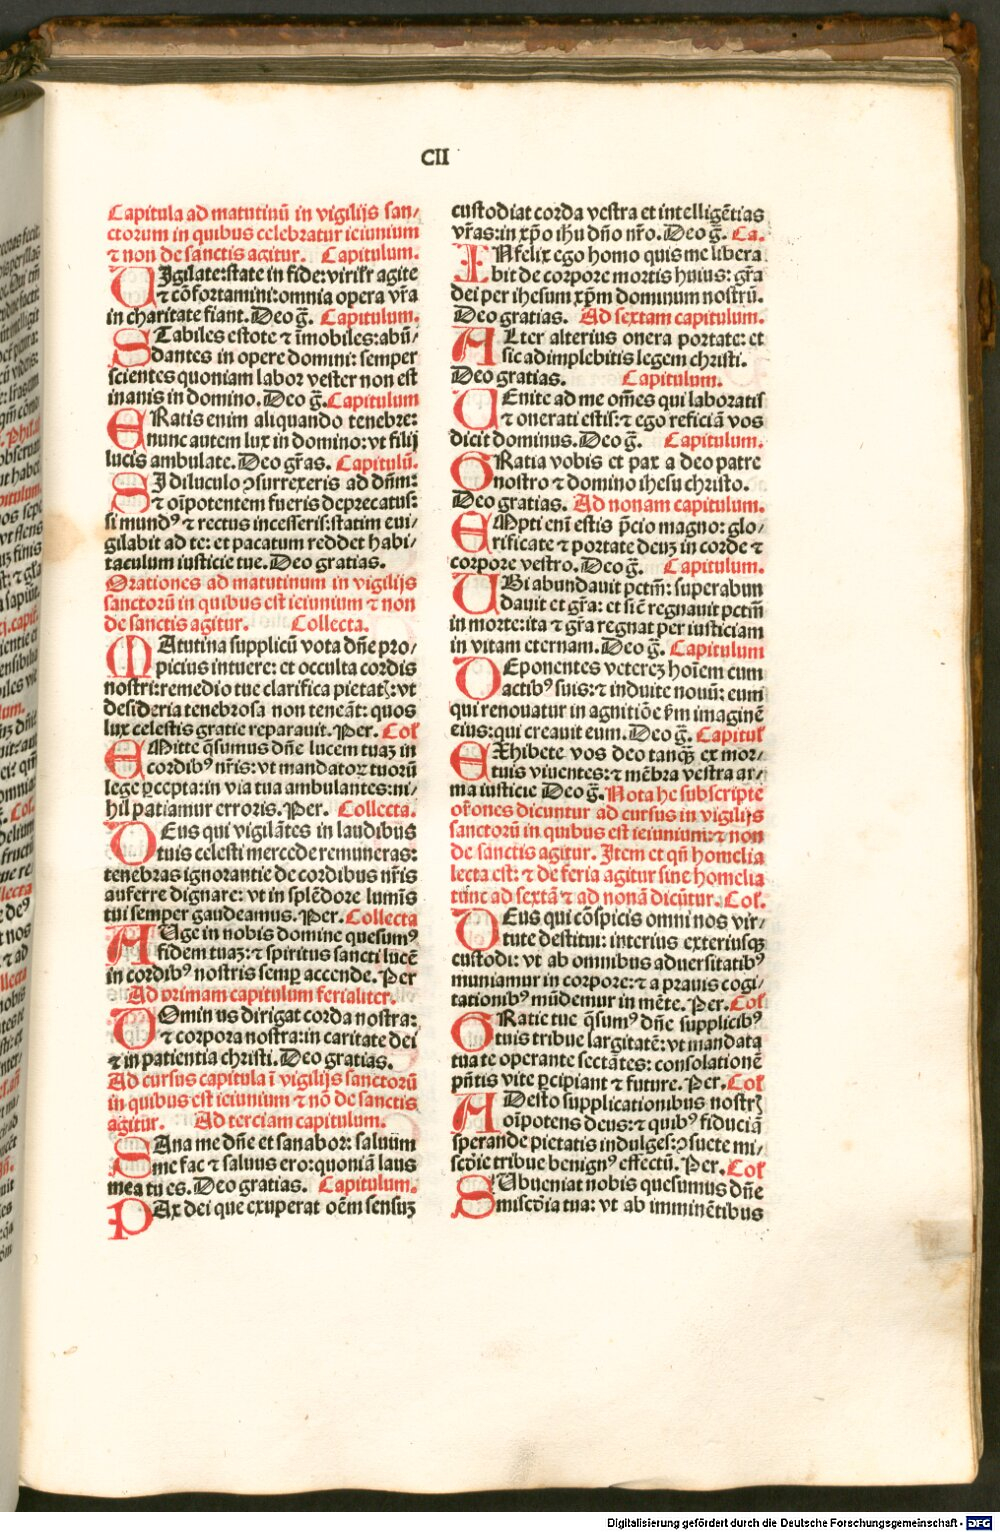 CII
Capitula ad matutinū in vigilijs san/
ctorum in quibus celebratur ieiunium
⁊ non de sanctis agitur. Capitulum.
UIgilate: state in fide: virilr̄ agite
⁊ cōfortamini: omnia opera vr̄a
in charitate fiant. Deo g̅. Capitulum.
STabiles estote ⁊ īmobiles: abū/
dantes in opere domini: semper
scientes quoniam labor vester non est
inanis in domino. Deo g̅. Capitulum
ERatis enim aliquando tenebre:
nunc autem lux in domino: vt filij
lucis ambulate. Deo gr̄as. Capitulū.
SI diluculo ↄsurrexeris ad dn̄m:
⁊ oīpotentem fueris deprecatus:
si mundꝰ ⁊ rectus incesseris: statim eui/
gilabit ad te: et pacatum reddet habi/
taculum iusticie tue. Deo gratias.
Orationes ad matutinum in vigilijs
sanctorū in quibus est ieiunium ⁊ non
de sanctis agitur. Collecta.
MAtutina supplicū vota dn̄e pro/
picius intuere: et occulta cordis
nostri: remedio tue clarifica pietatꝭ: vt
desideria tenebrosa non teneāt: quos
lux celestis gratie reparauit. Per. Col̄
EMitte q̄sumus dn̄e lucem tuaꝫ in
cordibꝰ nr̄is: vt mandatoꝝ tuorū
lege ꝑcepta: in via tua ambulantes: ni/
hil patiamur erroris. Per. Collecta.
DEus qui vigilātes in laudibus
tuis celesti mercede remuneras:
tenebras ignorantie de cordibus nr̄is
auferre dignare: vt in splēdore lumīs
tui semper gaudeamus. Per. Collecta
AUge in nobis domine quesumꝰ
fidem tuaꝫ: ⁊ spiritus sancti lucē
in cordibꝰ nostris semꝑ accende. Per
Ad primam capitulum ferialiter.
DOminus dirigat corda nostra:
⁊ corpora nostra: in caritate dei
⁊ in patientia christi. Deo gratias.
Ad cursus capitula ī vigilijs sanctorū
in quibus est ieiunium ⁊ nō de sanctis
agitur. Ad terciam capitulum.
SAna me dn̄e et sanabor: saluum
me fac ⁊ saluus ero: quoniā laus
mea tu es. Deo gratias. Capitulum.
PAx dei que exuperat oēm sensuꝫ
custodiat corda vestra et intelligētias
vr̄as: in xp̄o ihu dn̄o nr̄o. Deo g̅. Ca.
INfelix ego homo quis me libera
bit de corpore mortis huius: gr̄a
dei per ihesum xp̄m dominum nostrū.
Deo gratias. Ad sextam capitulum.
ALter alterius onera portate: et
sic adimplebitis legem christi.
Deo gratias. Capitulum.
UEnite ad me om̄es qui laboratis
⁊ onerati estis: ⁊ ego reficiā vos
dicit dominus. Deo g̅. Capitulum.
GRatia vobis et pax a deo patre
nostro ⁊ domino ihesu christo.
Deo gratias. Ad nonam capitulum.
EMpti enī estis p̄cio magno: glo/
rificate ⁊ portate deuꝫ in corde ⁊
corpore vestro. Deo g̅. Capitulum.
UBi abundauit pctm̄: superabun
dauit et gr̄a: et sic̄ regnauit pctm̄
in morte: ita ⁊ gr̄a regnat per iusticiam
in vitam eternam. Deo g̅. Capitulum
DEponentes vetereꝫ hoīem cum
actibꝰ suis: ⁊ induite nouū: eum
qui renouatur in agnitiōe ẜm imaginē
eius: qui creauit eum. Deo g̅. Capitul̄
EXhibete vos deo tanqꝫ ex mor/
tuis viuentes: ⁊ mēbra vestra ar/
ma iusticie Deo g̅. Nota he subscripte
or̄ones dicuntur ad cursus in vigilijs
sanctorū in quibus est ieiunium: ⁊ non
de sanctis agitur. Item et qn̄ homelia
lecta est: ⁊ de feria agitur sine homelia
tūnc ad sextā ⁊ ad nonā dicūtur. Col̄.
DEus qui cōspicis omni nos vir/
tute destitui: interius exteriusqꝫ
custodi: vt ab omnibus aduersitatibꝰ
muniamur in corpore: ⁊ a prauis cogi/
tationibꝰ mūdemur in mēte. Per. Col̄
GRatie tue q̄sumꝰ dn̄e supplicibꝰ
tuis tribue largitatē: vt mandata
tua te operante sectātes: consolationē
pn̄tis vite ꝑcipiant ⁊ future. Per. Col̄
ADesto supplicationibus nostrꝭ
oīpotens deus: ⁊ quibꝰ fiduciā
sperande pietatis indulges: ↄsuete mi/
sc̄die tribue benignꝰ effectū. Per. Col̄
SUbueniat nobis quesumus dn̄e
misc̄dia tua: vt ab imminētibus
Digitalisierung gefördert durch die Deutsche Forschungsgemeinschaft - DFG